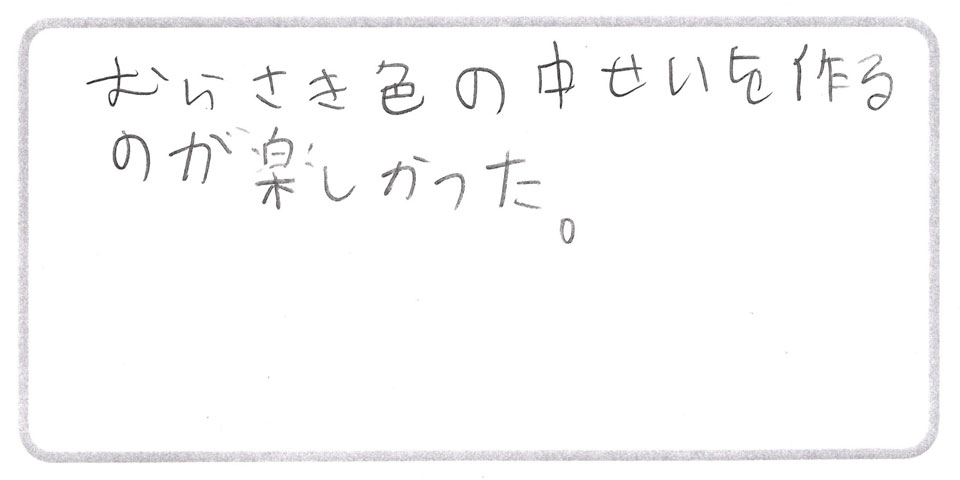 むらさき色の中せいを作る
のが楽しかった。